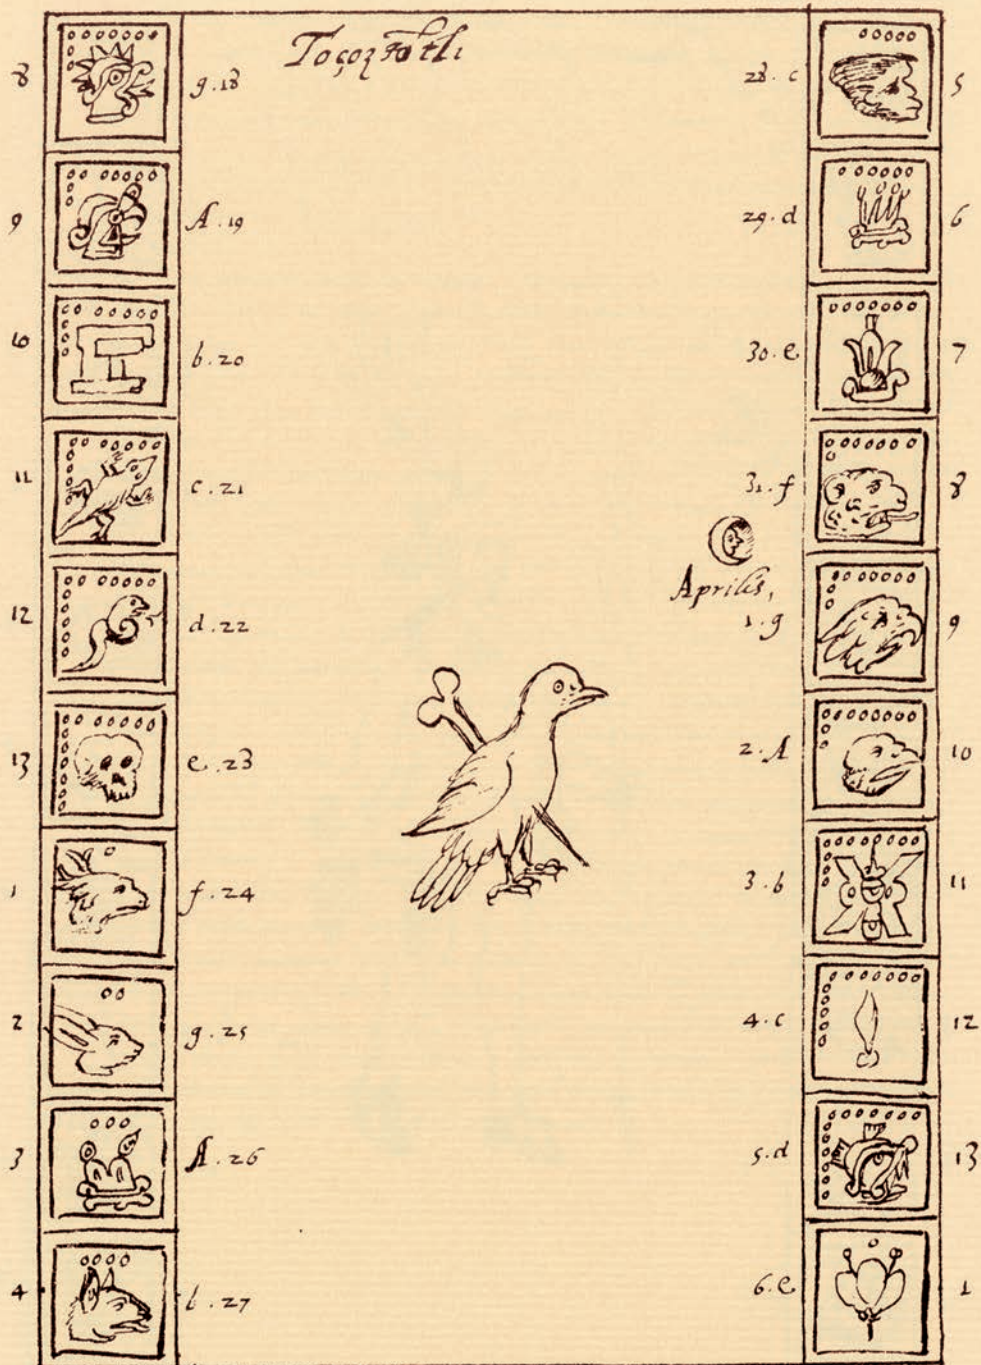 Toçoztōtli
8 g.18
9 A.19
10 b.20
11 c.21
12 d.22
13 e.23
1 f.24
2 g.25
3 A.26
4 b.27
28.c 5
29.d 6
30.e 7
31.f 8
Aprilis,
1.g 9
2.A 10
3.b 11
4.c 12
5.d 13
6.e 1